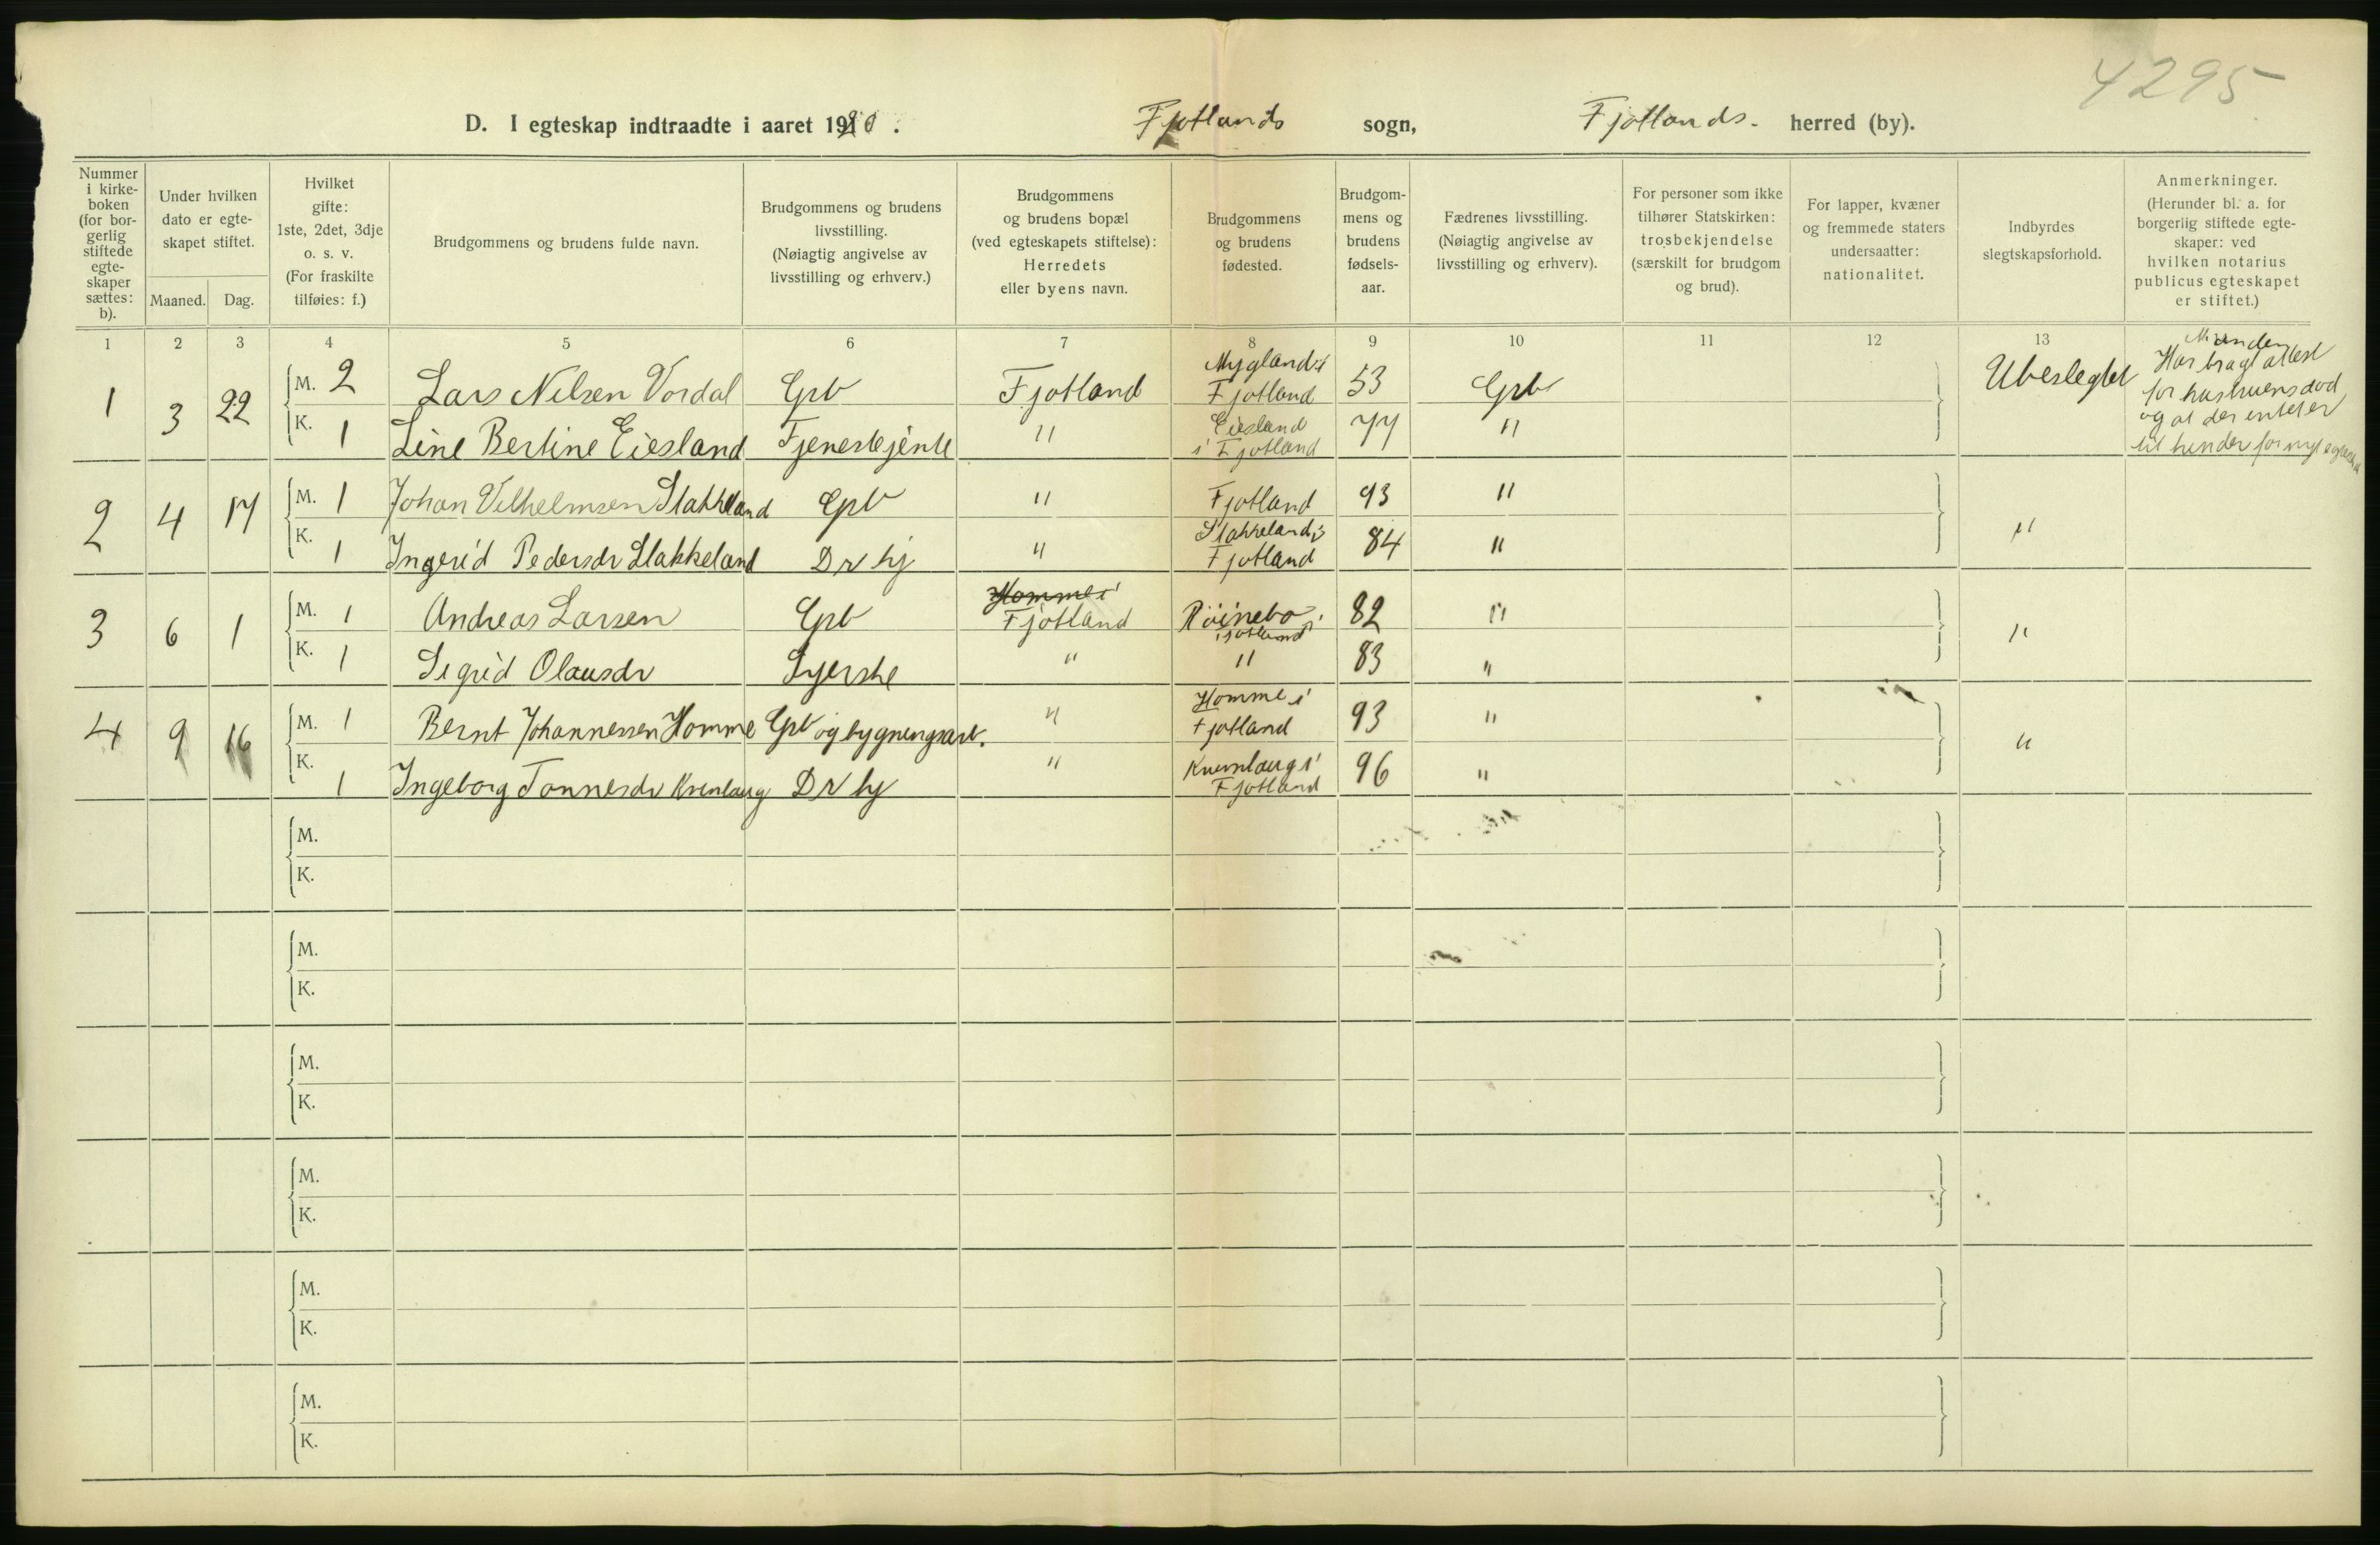 4295
D. I egteskap indtraadte i aaret 1920. Fjotlands sogn, Fjotlands. herred (by).
Nummer i kirkeboken (for borgerlig stiftede egteskaper sættes: b).
Under hvilken dato er egteskapet stiftet.
Maaned. Dag.
Hvilket gifte: 1ste, 2det, 3dje o. s. v. (For fraskilte tilføies: f.)
Brudgommens og brudens fulde navn.
Brudgommens og brudens livsstilling. (Nøiagtig angivelse av livsstilling og erhverv.)
Brudgommens og brudens bopæl (ved egteskapets stiftelse): Herredets eller byens navn.
Brudgommens og brudens fødested.
Brudgommens og brudens fødselsaar.
Fædrenes livsstilling. (Nøiagtig angivelse av livsstilling og erhverv).
For personer som ikke tilhører Statskirken: trosbekjendelse (særskilt for brudgom og brud).
For lapper, kvæner og fremmede staters undersaatter: nationalitet.
Indbyrdes slegtskapsforhold.
Anmerkninger. (Herunder bl. a. for borgerlig stiftede egteskaper: ved hvilken notarius publicus egteskapet er stiftet.)
1 2 3 4 5 6 7 8 9 10 11 12 13
1 3 22 M. 2 Lars Nilsen Vordal Grb Fjotland Mygland i Fjotland 53 Grb Ubeslegtet
Manden Har bragt attest for hustruens død og at der intet er til hinder for nyt egteskab
K. 1 Line Bertine Eiesland Tjenestejente " Eiesland i Fjotland 77 "
2 4 17 M. 1 Johan Vilhelmsen Stakkeland Grb " Fjotland 93 " "
K. 1 Ingerid Pedersdr Stakkeland Dr hj " Stakkeland i Fjotland 84 "
3 6 1 M. 1 Andreas Larsen Grb Homme i Fjotland Röinebo i Fjotland 82 " "
K. 1 Sigrid Olausdr Syerske " " 83 "
4 9 16 M. 1 Bernt Johannessen Homme Grb og bygningsarb. " Homme i Fjotland 93 " "
K. 1 Ingeborg Tonnesdr Kvenlaug Dr hj " Kvenlaug i Fjotland 96 "
M.
K.
M.
K.
M.
K.
M.
K.
M.
K.
M.
K.